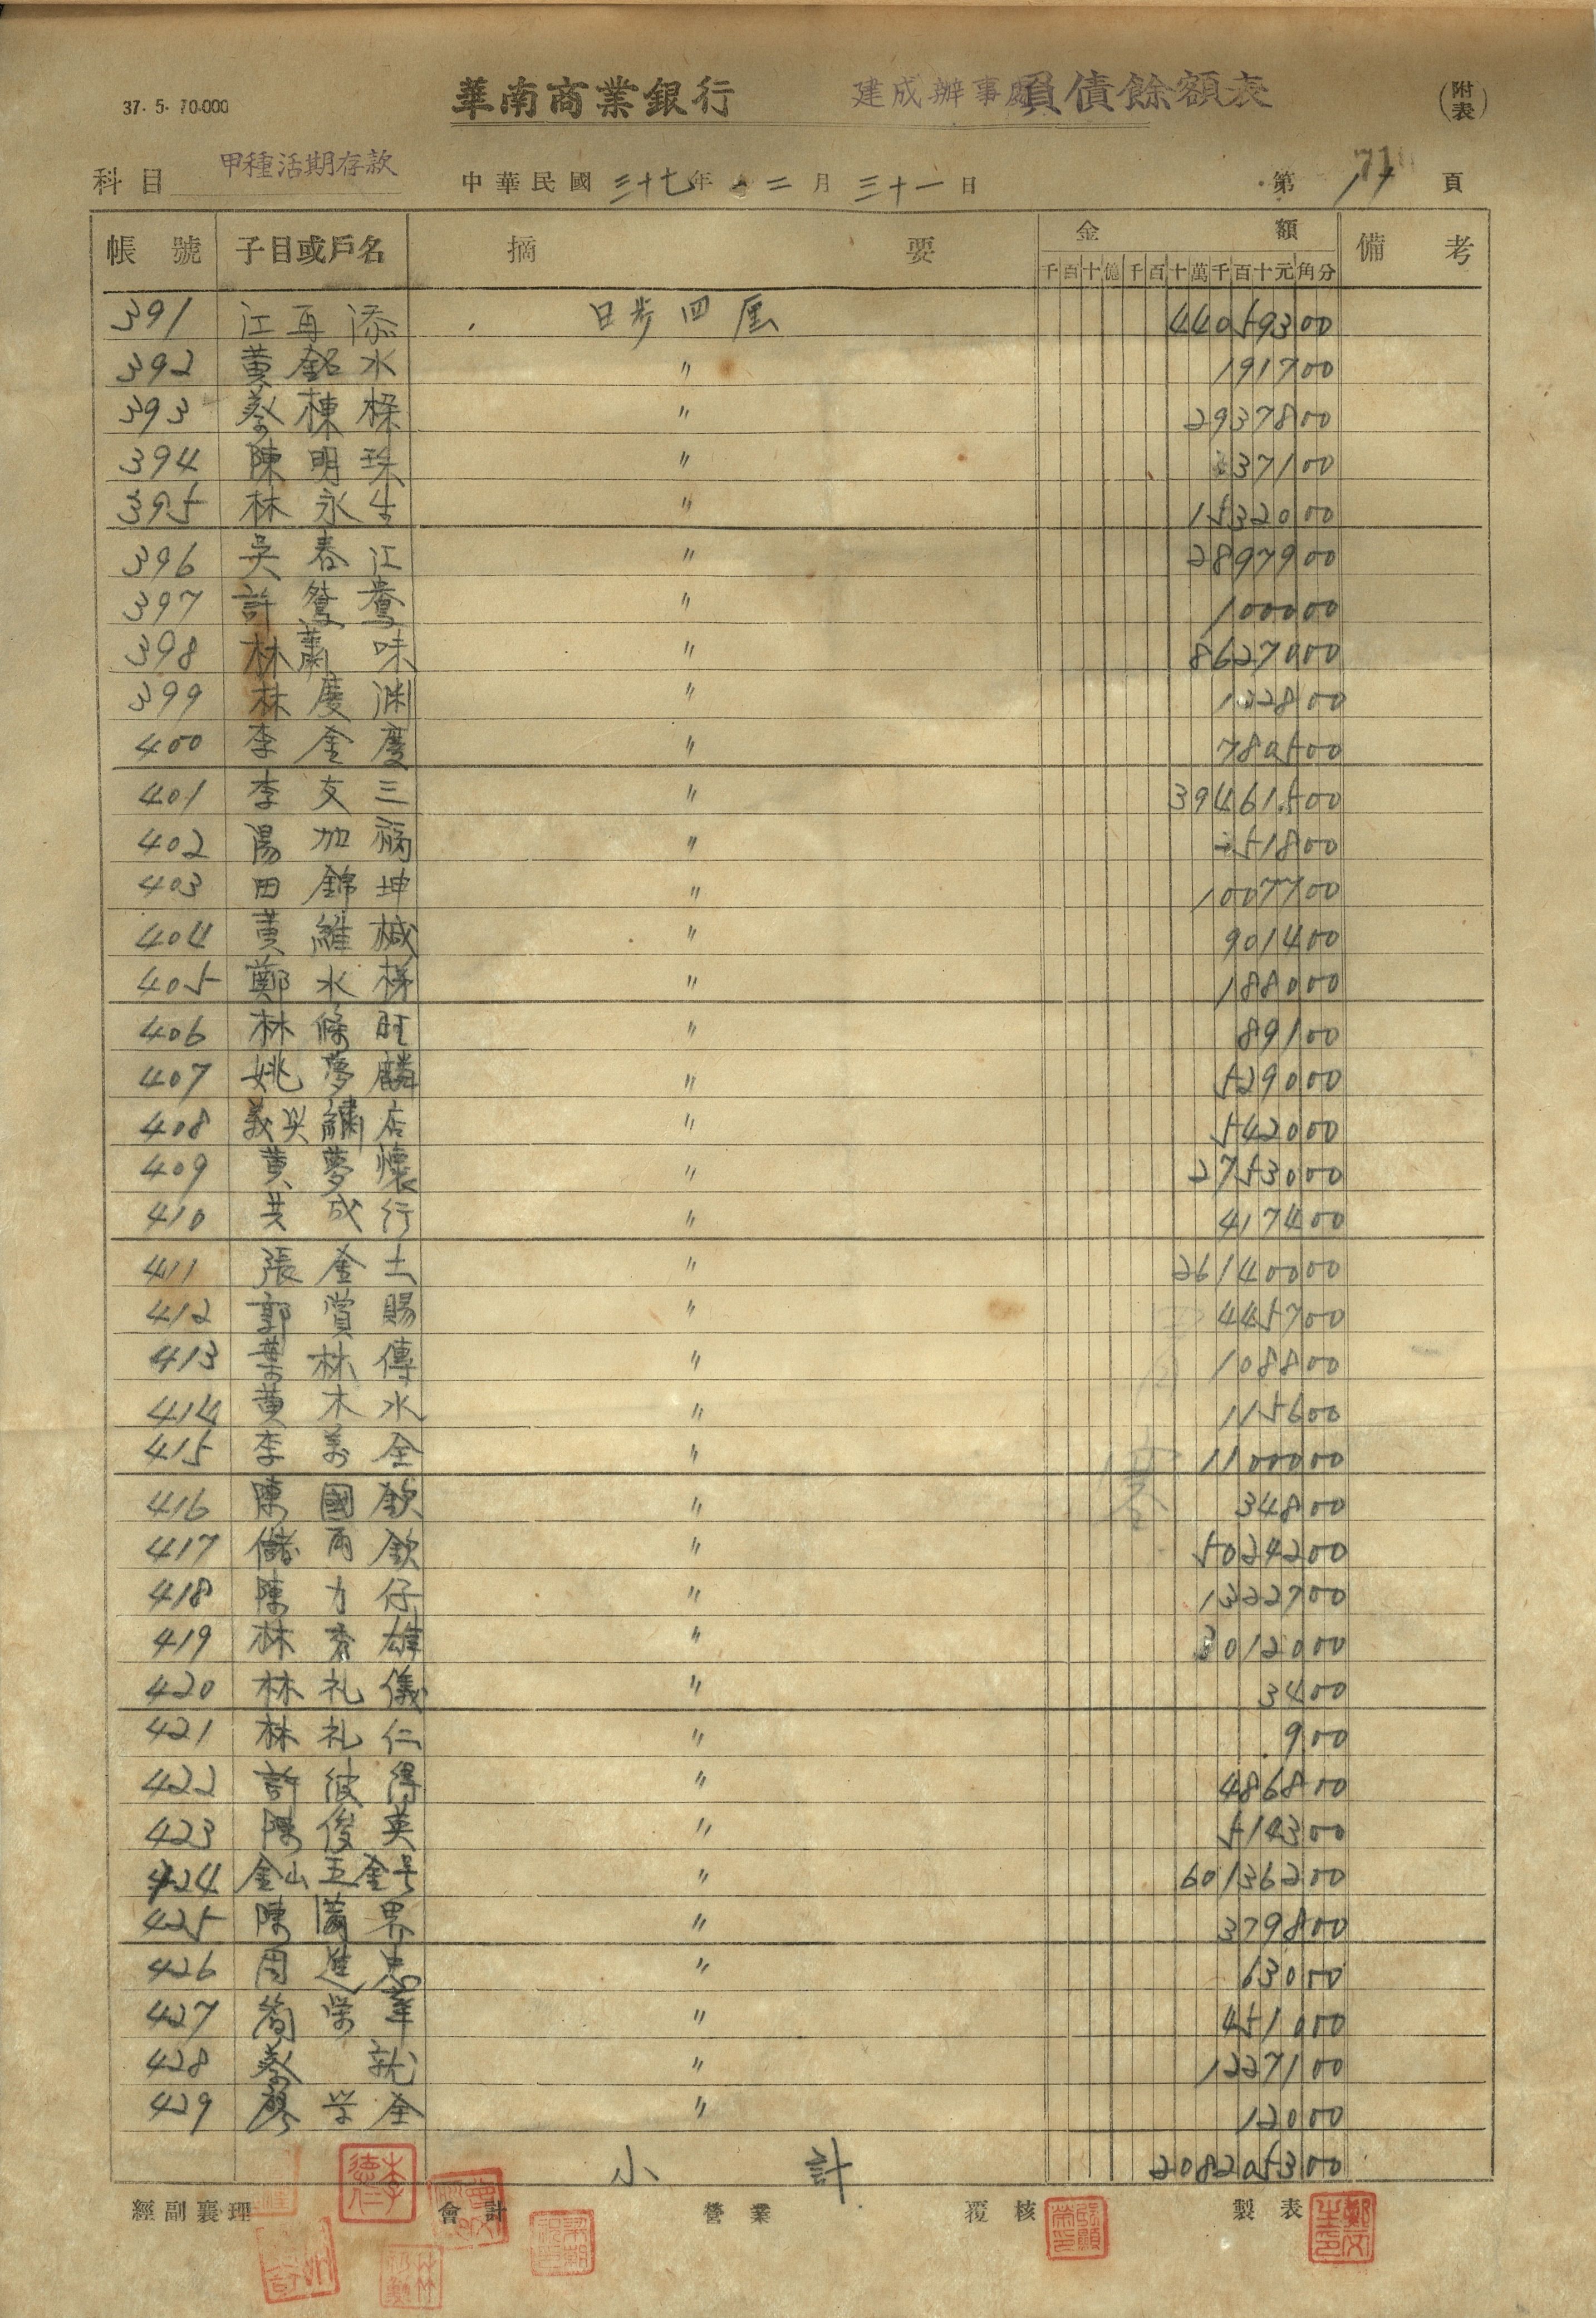 37. 5. 70.000 華南商業銀行 建成辦事處 負債餘額表 (附表)
科目 甲種活期存款 中華民國 三十七 年 十二 月 三十一 日 第 頁
帳號 子目或戶名 摘要 金額 備考
千百十億千百十萬千百十元角分
391 江再添 日步四厘 44059300
392 黃銘水 〃 191700
393 蔡棟樑 〃 2937800
394 陳明珠 〃 37100
395 林永生 〃 1532000
396 吳春江 〃 2897900
397 許鴛鴦 〃 100000
398 林蕭味 〃 8627000
399 林慶渊 〃 132800
400 李金慶 〃 780500
401 李友三 〃 39461500
402 湯加 〃 51800
403 田錦坤 〃 1007700
404 黃維 〃 901400
405 鄭水梯 〃 188000
406 林條旺 〃 89100
407 姚夢麟 〃 529000
408 義興繡店 〃 542000
409 黃夢懷 〃 2753000
410 共成行 〃 417400
411 張金土 〃 26140000
412 郭賞賜 〃 445700
413 葉林傳 〃 108800
414 黃木水 〃 115600
415 李萬全 〃 1100000
416 陳國欽 〃 34800
417 儲雨欽 〃 5024200
418 陳力仔 〃 1322700
419 林秀雄 〃 3012000
420 林礼儀 〃 3400
421 林礼仁 〃 900
422 許彼得 〃 486800
423 陳俊英 〃 514300
424 金山五金号 〃 60136200
425 陳滿界 〃 379800
426 周進忠 〃 63000
427 簡崇 〃 451000
428 蔡就 〃 1227100
429 廖学全 〃 12000
小計 208205300
經副襄理 李德仁 會計 營業 覆核 製表